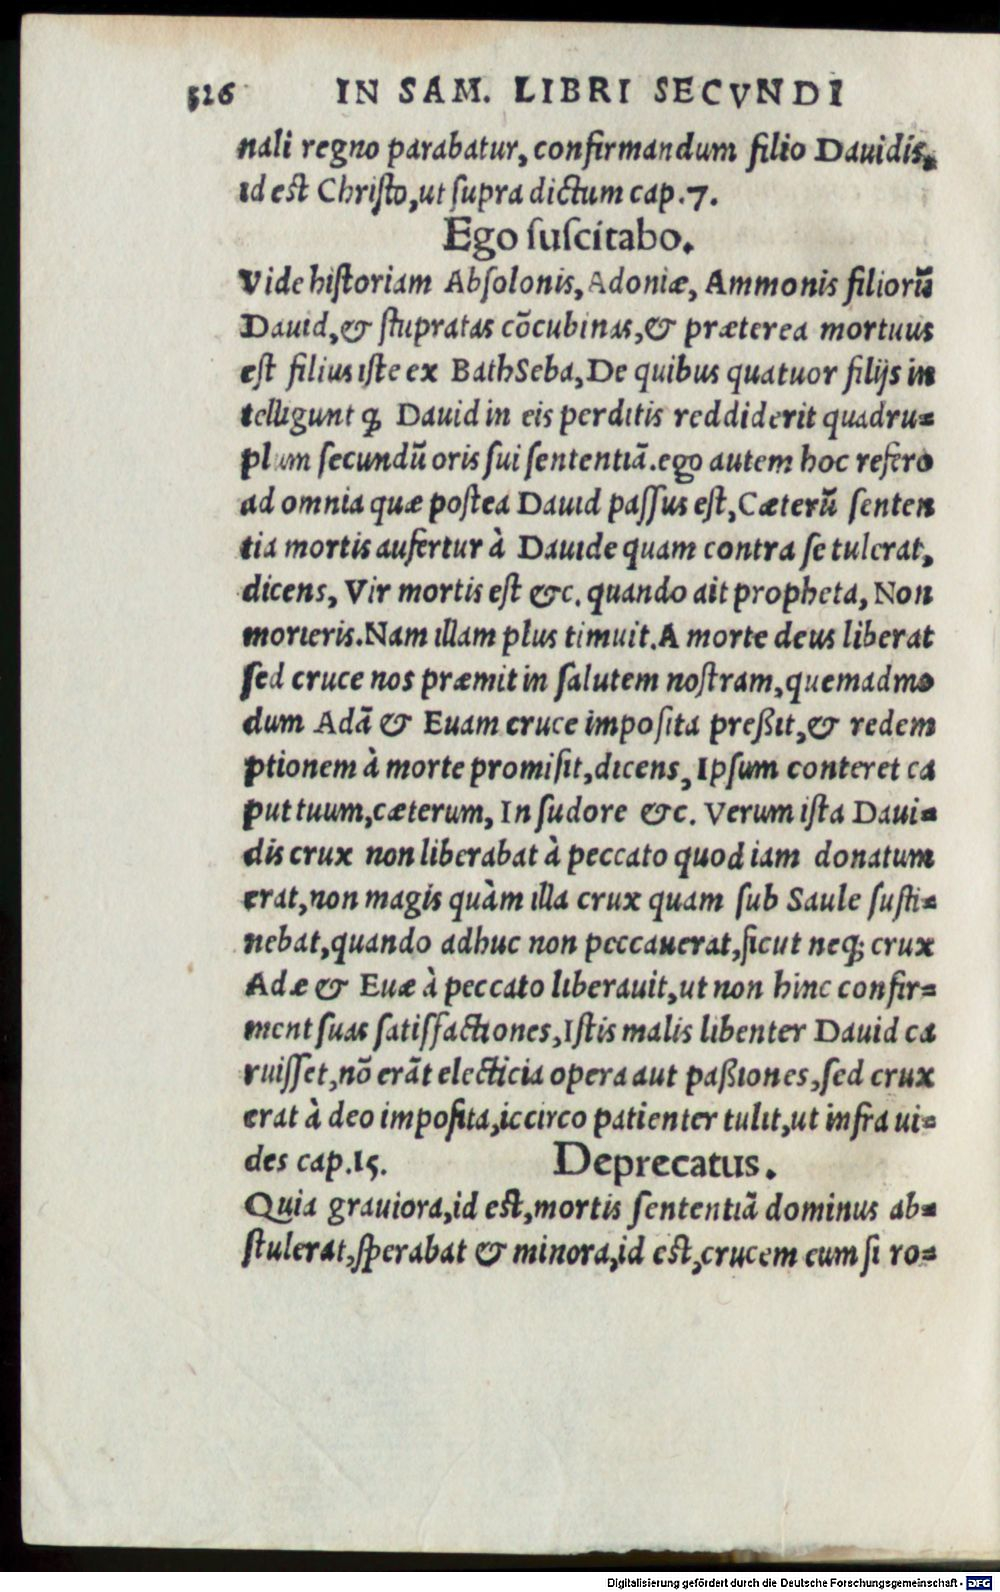 326 IN SAM. LIBRI SECVNDI
nali regno parabatur, confirmandum filio Dauidis,
id est Christo, ut supra dictum cap.7.
Ego suscitabo.
Vide historiam Absolonis, Adoniæ, Ammonis filiorū
Dauid, & stupratas cōcubinas, & præterea mortuus
est filius iste ex BathSeba, De quibus quatuor filijs in
telligunt ꝙ Dauid in eis perditis reddiderit quadru=
plum secundū oris sui sententiā. ego autem hoc refero
ad omnia quæ postea Dauid passus est, Cæterū senten
tia mortis aufertur à Dauide quam contra se tulerat,
dicens, Vir mortis est &c. quando ait propheta, Non
morieris. Nam illam plus timuit. A morte deus liberat
sed cruce nos præmit in salutem nostram, quemadmo
dum Adā & Euam cruce imposita preßit, & redem
ptionem à morte promisit, dicens, Ipsum conteret ca
put tuum, cæterum, In sudore &c. Verum ista Daui=
dis crux non liberabat à peccato quod iam donatum
erat, non magis quàm illa crux quam sub Saule susti=
nebat, quando adhuc non peccauerat, sicut neq; crux
Adæ & Euæ à peccato liberauit, ut non hinc confir=
ment suas satisfactiones, Istis malis libenter Dauid ca
ruisset, nō erāt electicia opera aut paßiones, sed crux
erat à deo imposita, iccirco patienter tulit, ut infra ui=
des cap.15. Deprecatus.
Quia grauiora, id est, mortis sententiā dominus ab=
stulerat, sperabat & minora, id est, crucem eum si ro=
Digitalisierung gefördert durch die Deutsche Forschungsgemeinschaft - DFG